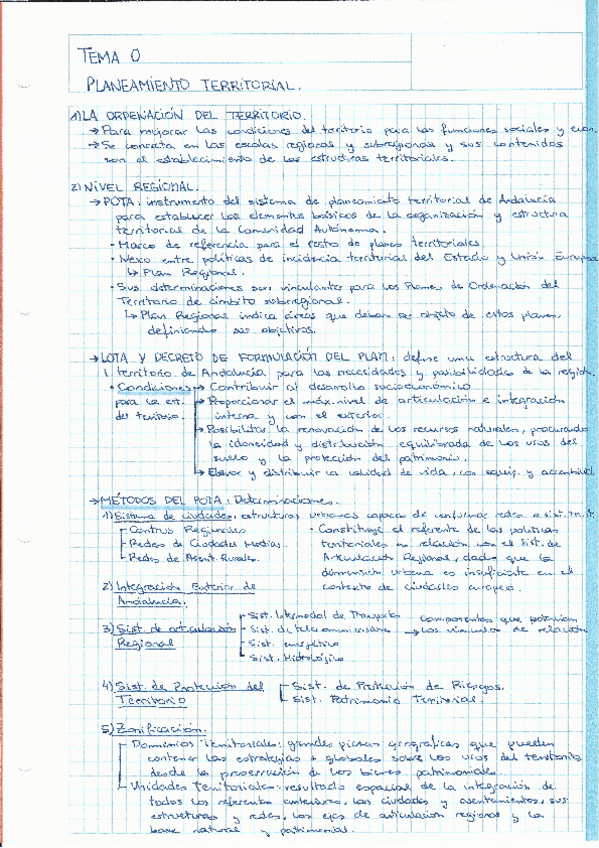 TEMA 0
PLANEAMIENTO TERRITORIAL.
1) LA ORDENACIÓN DEL TERRITORIO.
→ Para mejorar las condiciones del territorio para las funciones sociales y econ.
→ Se concreta en las escalas regional y subregional y sus contenidos
son el establecimiento de las estructuras territoriales.
2) NIVEL REGIONAL.
→ POTA: instrumento del sistema de planeamiento territorial de Andalucía
para establecer los elementos básicos de la organización y estructura
territorial de la Comunidad Autónoma.
· Marco de referencia para el resto de planes territoriales.
· Nexo entre políticas de incidencia territorial del Estado y Unión Europea
↳ Plan Regional.
· Sus determinaciones son vinculantes para los Planes de Ordenación del
Territorio de ámbito subregional.
↳ Plan Regional indica áreas que deben ser objeto de estos planes,
definiendo sus objetivos.
→ LOTA Y DECRETO DE FORMULACIÓN DEL PLAN: define una estructura del
territorio de Andalucía para las necesidades y posibilidades de la región.
· Condiciones → Contribuir al desarrollo socioeconómico
para la est. → Proporcionar el máx. nivel de articulación e integración
del territorio. interna y con el exterior.
→ Posibilitar la renovación de los recursos naturales, procurando
la idoneidad y distribución equilibrada de los usos del
suelo y la protección del patrimonio.
→ Elevar y distribuir la calidad de vida, con equip. y accesibilid.
→ MÉTODOS DEL POTA: Determinaciones.
1) Sistema de ciudades: estructuras urbanas capaces de conformar redes o sist.
- Centros Regionales · Constituye el referente de las políticas
- Redes de Ciudades Medias. territoriales en relación con el Sist. de
- Redes de Asent. Rurales. Articulación Regional, dado que la
dimensión urbana es insuficiente en el
2) Integración Exterior de contexto de ciudades europeo.
Andalucía.
- Sist. Intermodal de Transporte componentes que potencian
3) Sist. de articulación - Sist. de telecomunicaciones → los vínculos de relación
Regional - Sist. energético
- Sist. Hidrológico
4) Sist. de Protección del - Sist. de Protección de Riesgos.
Territorio - Sist. Patrimonio Territorial.
5) Zonificación.
- Dominios Territoriales: grandes piezas geográficas que pueden
contener las estrategias + globales sobre los usos del territorio
desde la preservación de los bienes patrimoniales.
- Unidades Territoriales: resultado espacial de la integración de
todos los referentes anteriores, las ciudades y asentamientos, sus
estructuras y redes, los ejes de articulación regional y la
base natural y patrimonial.